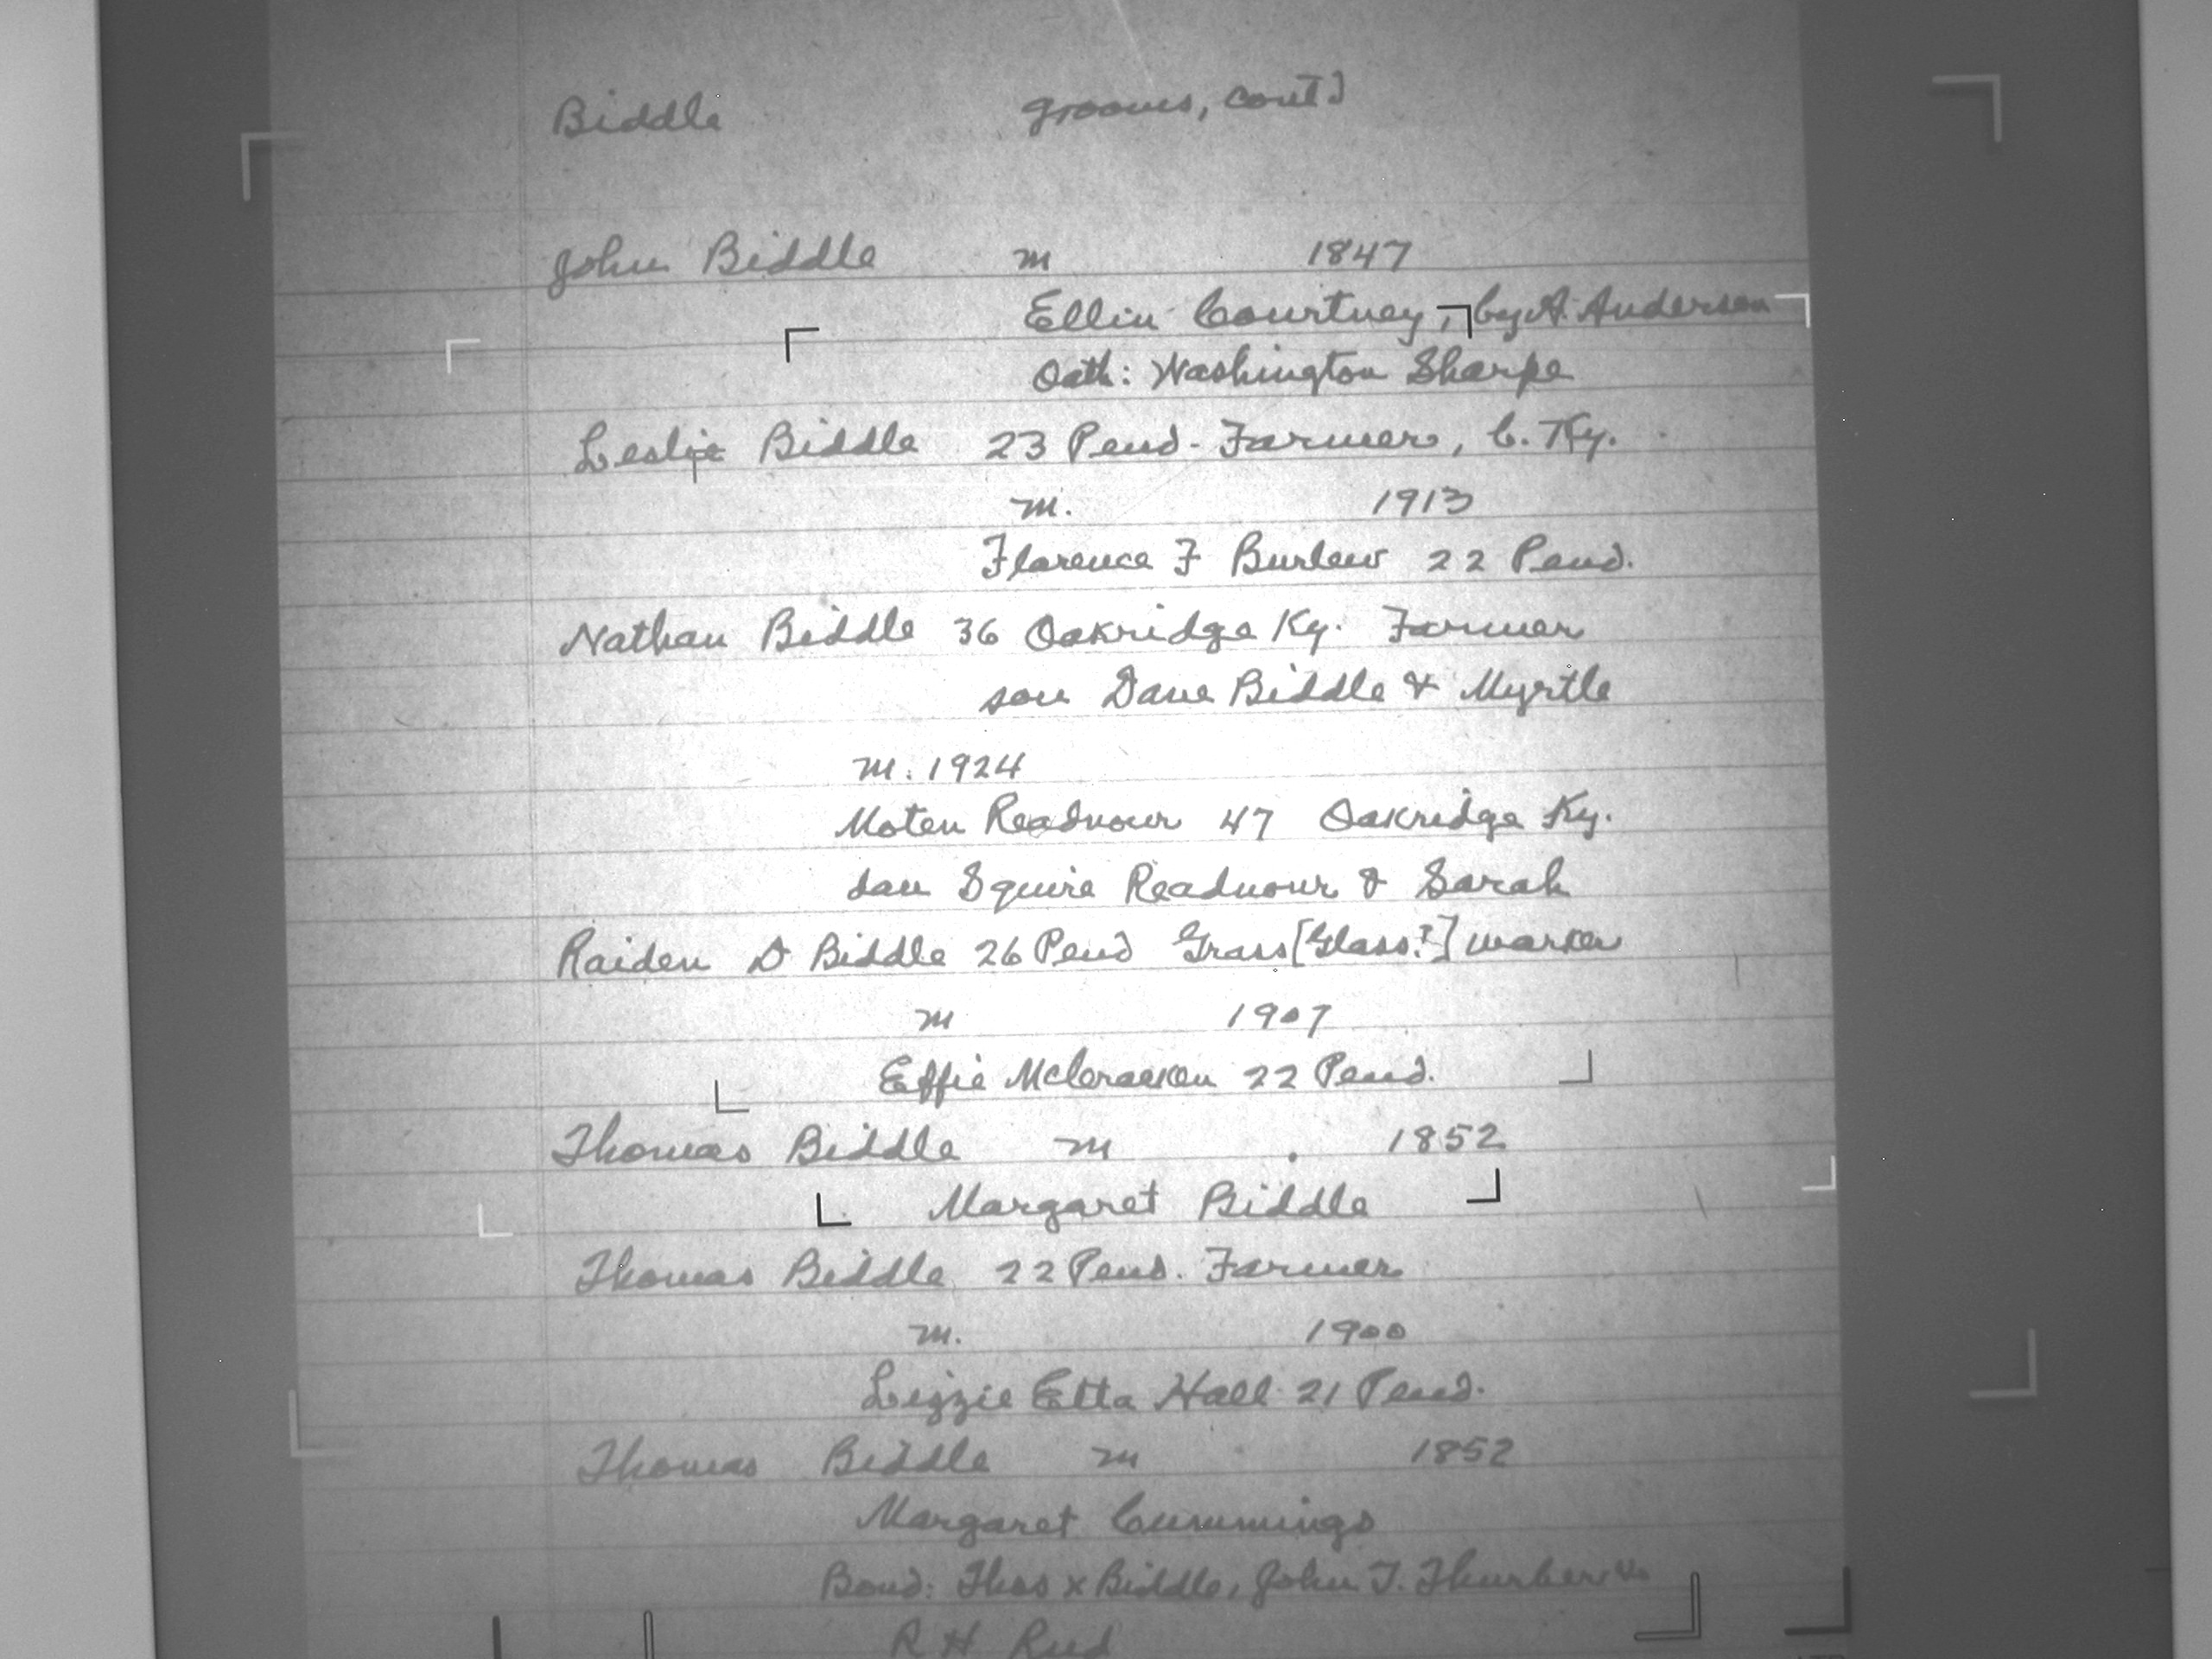 Biddle grooms, cont'd
John Biddle m 1847
Ellin Courtney, by A. Anderson
Oath: Washington Sharpe
Leslie Biddle 23 Pend - Farmer, C. Ky.
m. 1913
Florence F Burlew 22 Pend.
Nathan Biddle 36 Oakridge Ky. Farmer
son Dave Biddle & Myrtle
m. 1924
Moten Readnour 47 Oakridge Ky.
dau Squire Readnour & Sarah
Raiden D Biddle 26 Pend Grass [Glass?] worker
m 1907
Effie McCracken 22 Pend.
Thomas Biddle m 1852
Margaret Biddle
Thomas Biddle 22 Pend. Farmer
m. 1900
Lizzie Etta Hall 21 Pend.
Thomas Biddle m 1852
Margaret Cummings
Bond: Thos x Biddle, John T.
R H Reed